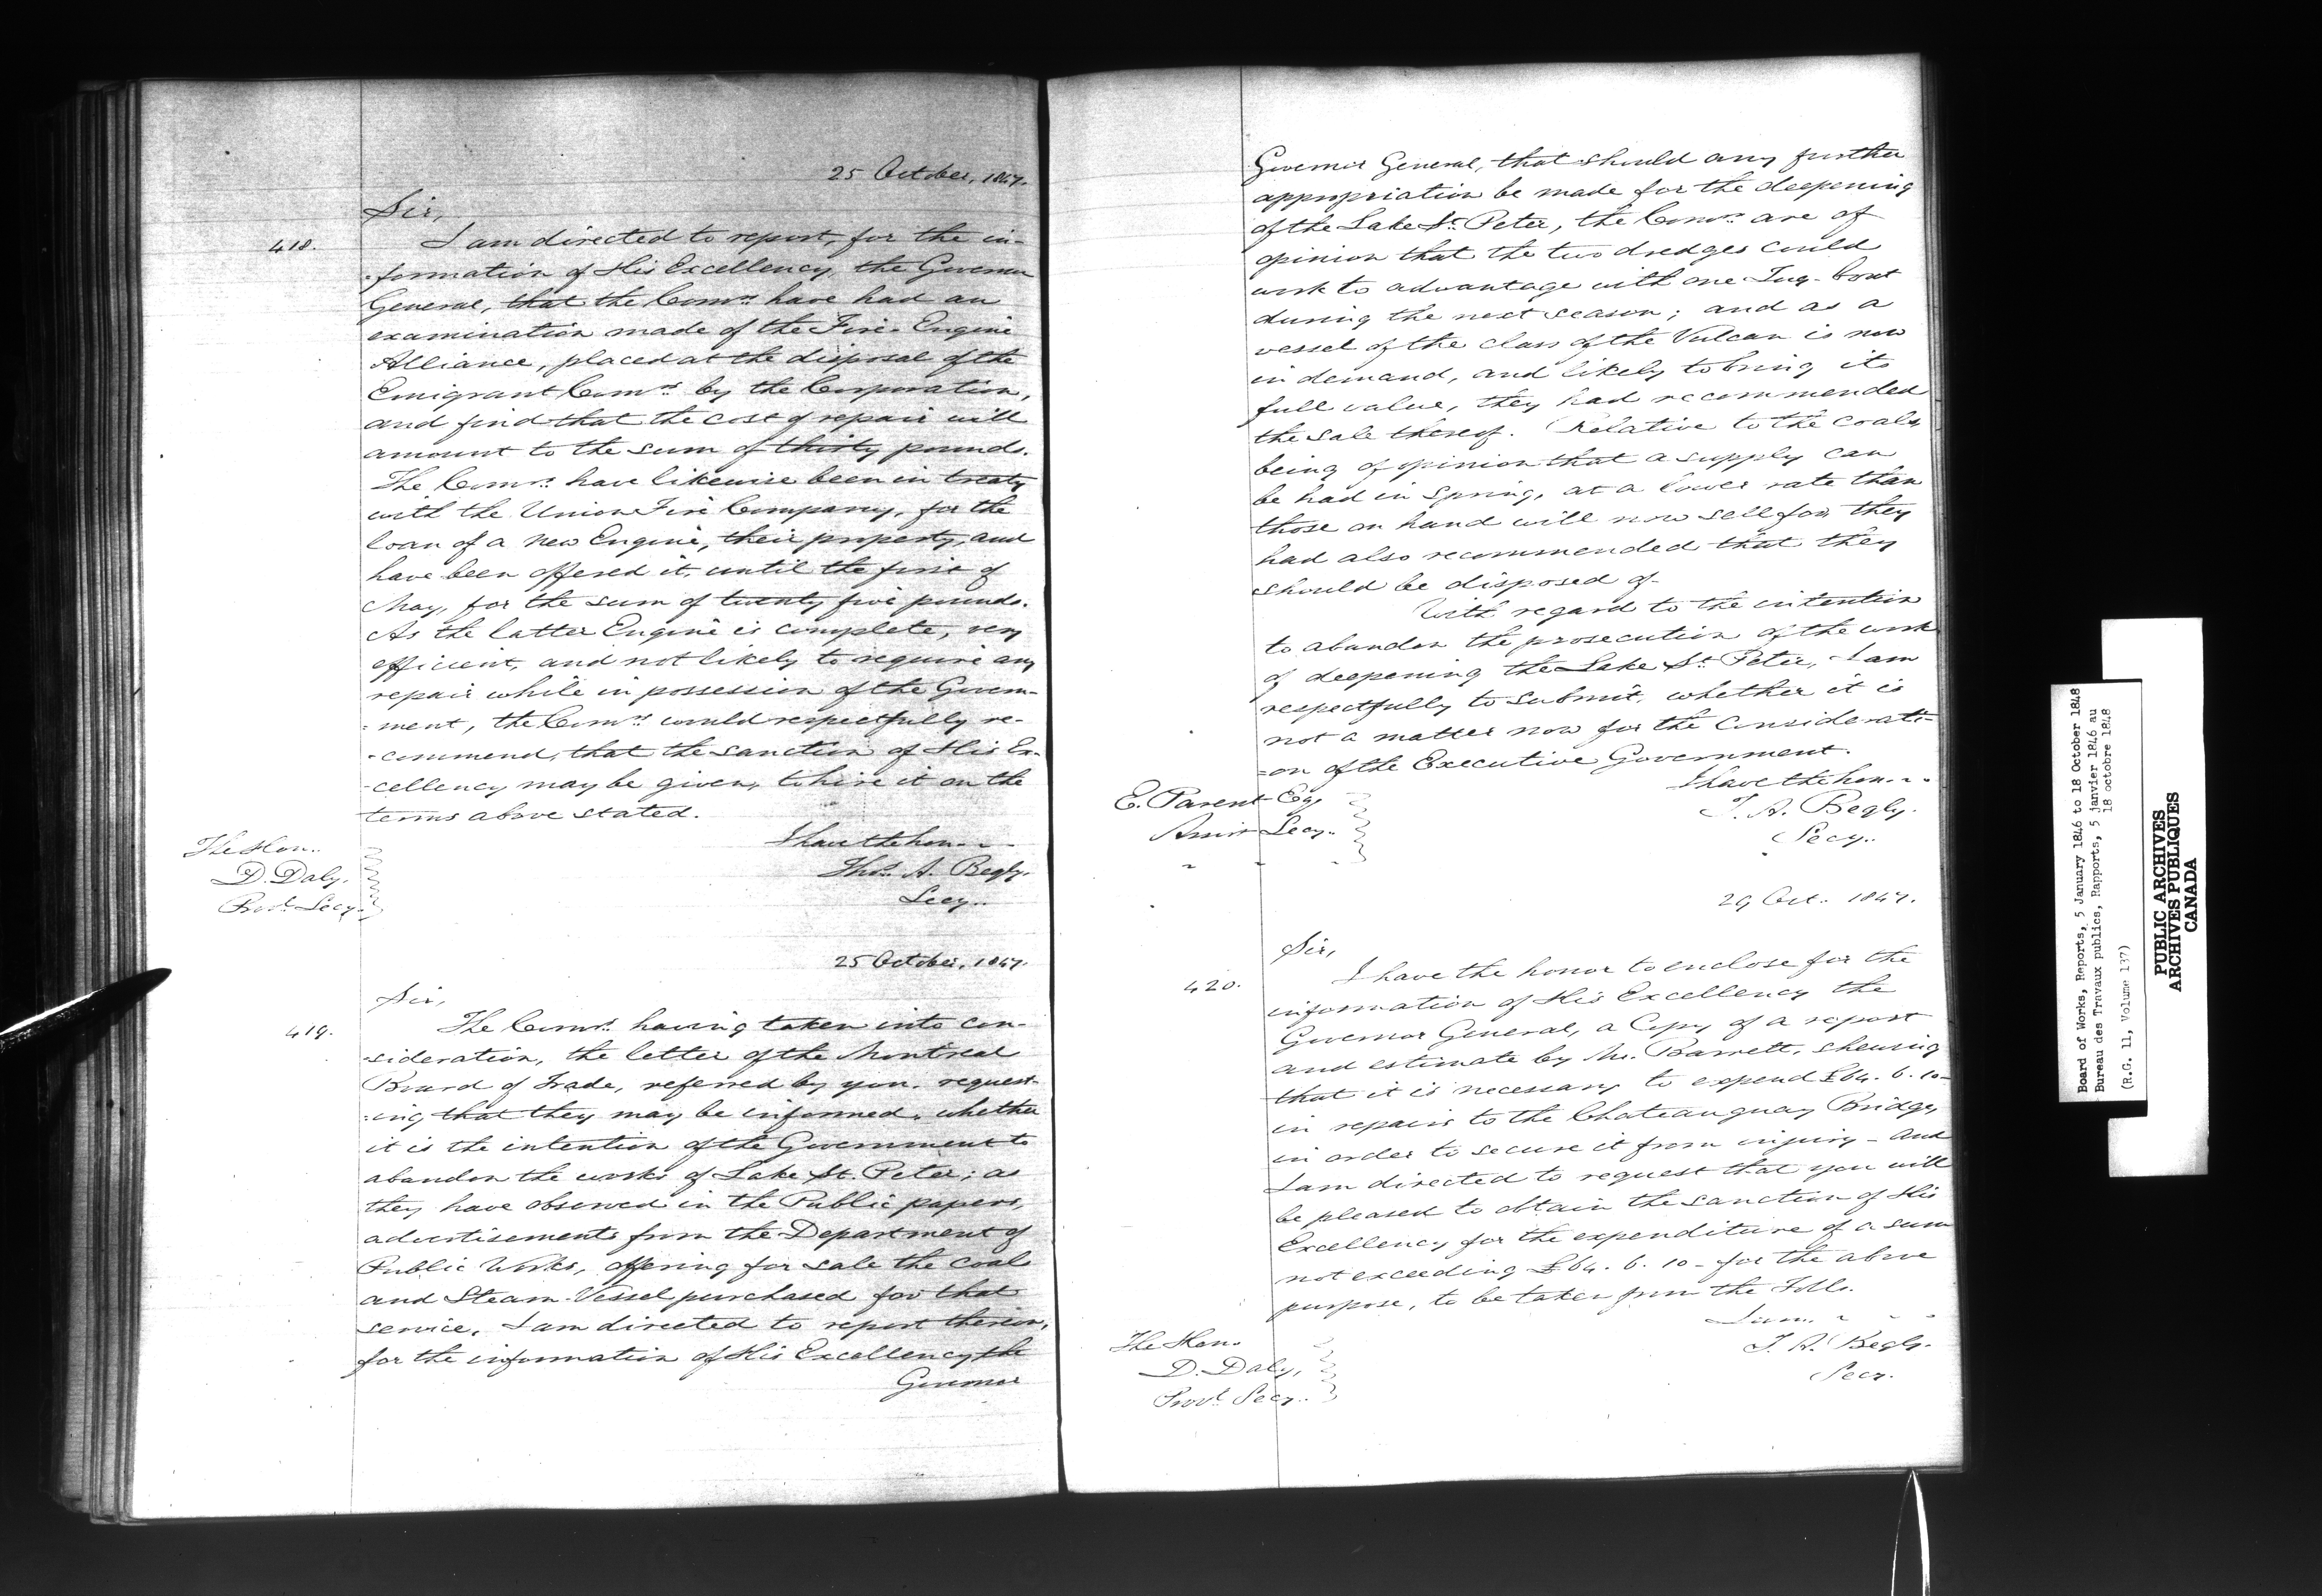 25 October, 1847.
Sir,
418.
I am directed to report, for the in-
-formation of His Excellency the Governor
General, that the Comrs. have had an
examination made of the Fire-Engine
Alliance, placed at the disposal of the
Emigrant Comrs. by the Corporation,
and find that the cost of repair will
amount to the sum of thirty pounds.
The Comrs. have likewise been in treaty
with the Union Fire Company, for the
loan of a new Engine, their property, and
have been offered it, until the first of
May, for the sum of twenty five pounds.
As the latter Engine is complete, very
efficient, and not likely to require any
repair while in possession of the Govern-
-ment, the Comrs. would respectfully re-
-commend, that the sanction of His Ex-
-cellency may be given, to hire it on the
terms above stated.
I have the hon.
Thos. A. Begly.
Secy.
The Hon.
D. Daly.
Provl. Secy.
25 October, 1847.
Sir,
419.
The Comrs. having taken into con-
-sideration, the letter of the Montreal
Board of Trade, referred by you, request-
-ing that they may be informed, whether
it is the intention of the Government to
abandon the works of Lake St. Peter; as
they have observed in the Public papers,
advertisements from the Department of
Public Works, offering for sale the coals
and Steam-Vessel purchased for that
service, I am directed to report thereon,
for the information of His Excellency the
Governor
Governor General, that should any further
appropriation be made for the deepening
of the Lake St. Peter, the Comrs. are of
opinion that the two dredges could
work to advantage with one Tug-boat
during the next season; and as a
vessel of the class of the Vulcan is now
in demand, and likely to bring its
full value, they had recommended
the sale thereof. Relative to the coals,
being of opinion that a supply can
be had in spring, at a lower rate than
those on hand will now sell for, they
had also recommended that they
should be disposed of.
With regard to the intention
to abandon the prosecution of the work
of deepening the Lake St. Peter, I am
respectfully to submit, whether it is
not a matter now for the considerati-
-on of the Executive Government.
I have the hon.
T. A. Begly.
Secy.
E. Parent Esq
Assist Secy.
29 Oct. 1847.
Sir,
420.
I have the honor to enclose for the
information of His Excellency the
Governor General, a Copy of a report
and estimate by Mr. Barrett, shewing
that it is necessary to expend £64. 6. 10-
in repairs to the Chateauguay Bridge,
in order to secure it from injury - and
I am directed to request that you will
be pleased to obtain the sanction of His
Excellency for the expenditure of a sum
not exceeding £64. 6. 10 - for the above
purpose, to be taken from the Tolls.
I am.
T. A. Begly.
Secy.
The Hon.
D. Daly,
Provl. Secy.
Board of Works, Reports, 5 January 1846 to 18 October 1848
Bureau des Travaux publics, Rapports, 5 janvier 1846 au
18 octobre 1848
(R.G. 11, Volume 137)
PUBLIC ARCHIVES
ARCHIVES PUBLIQUES
CANADA